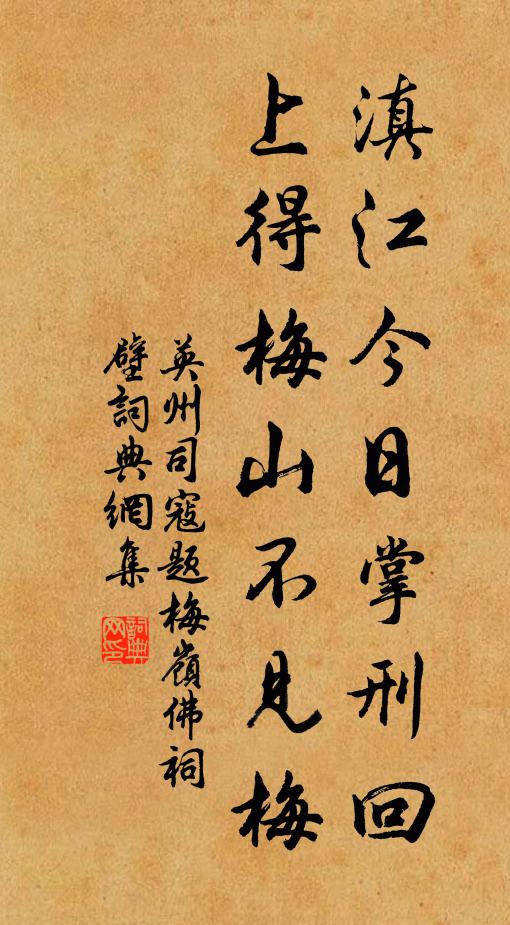 滇江今日掌刑回
上得梅山不見梅
英州司寇题梅嶺佛祠
壁詞典網集
詞典网印